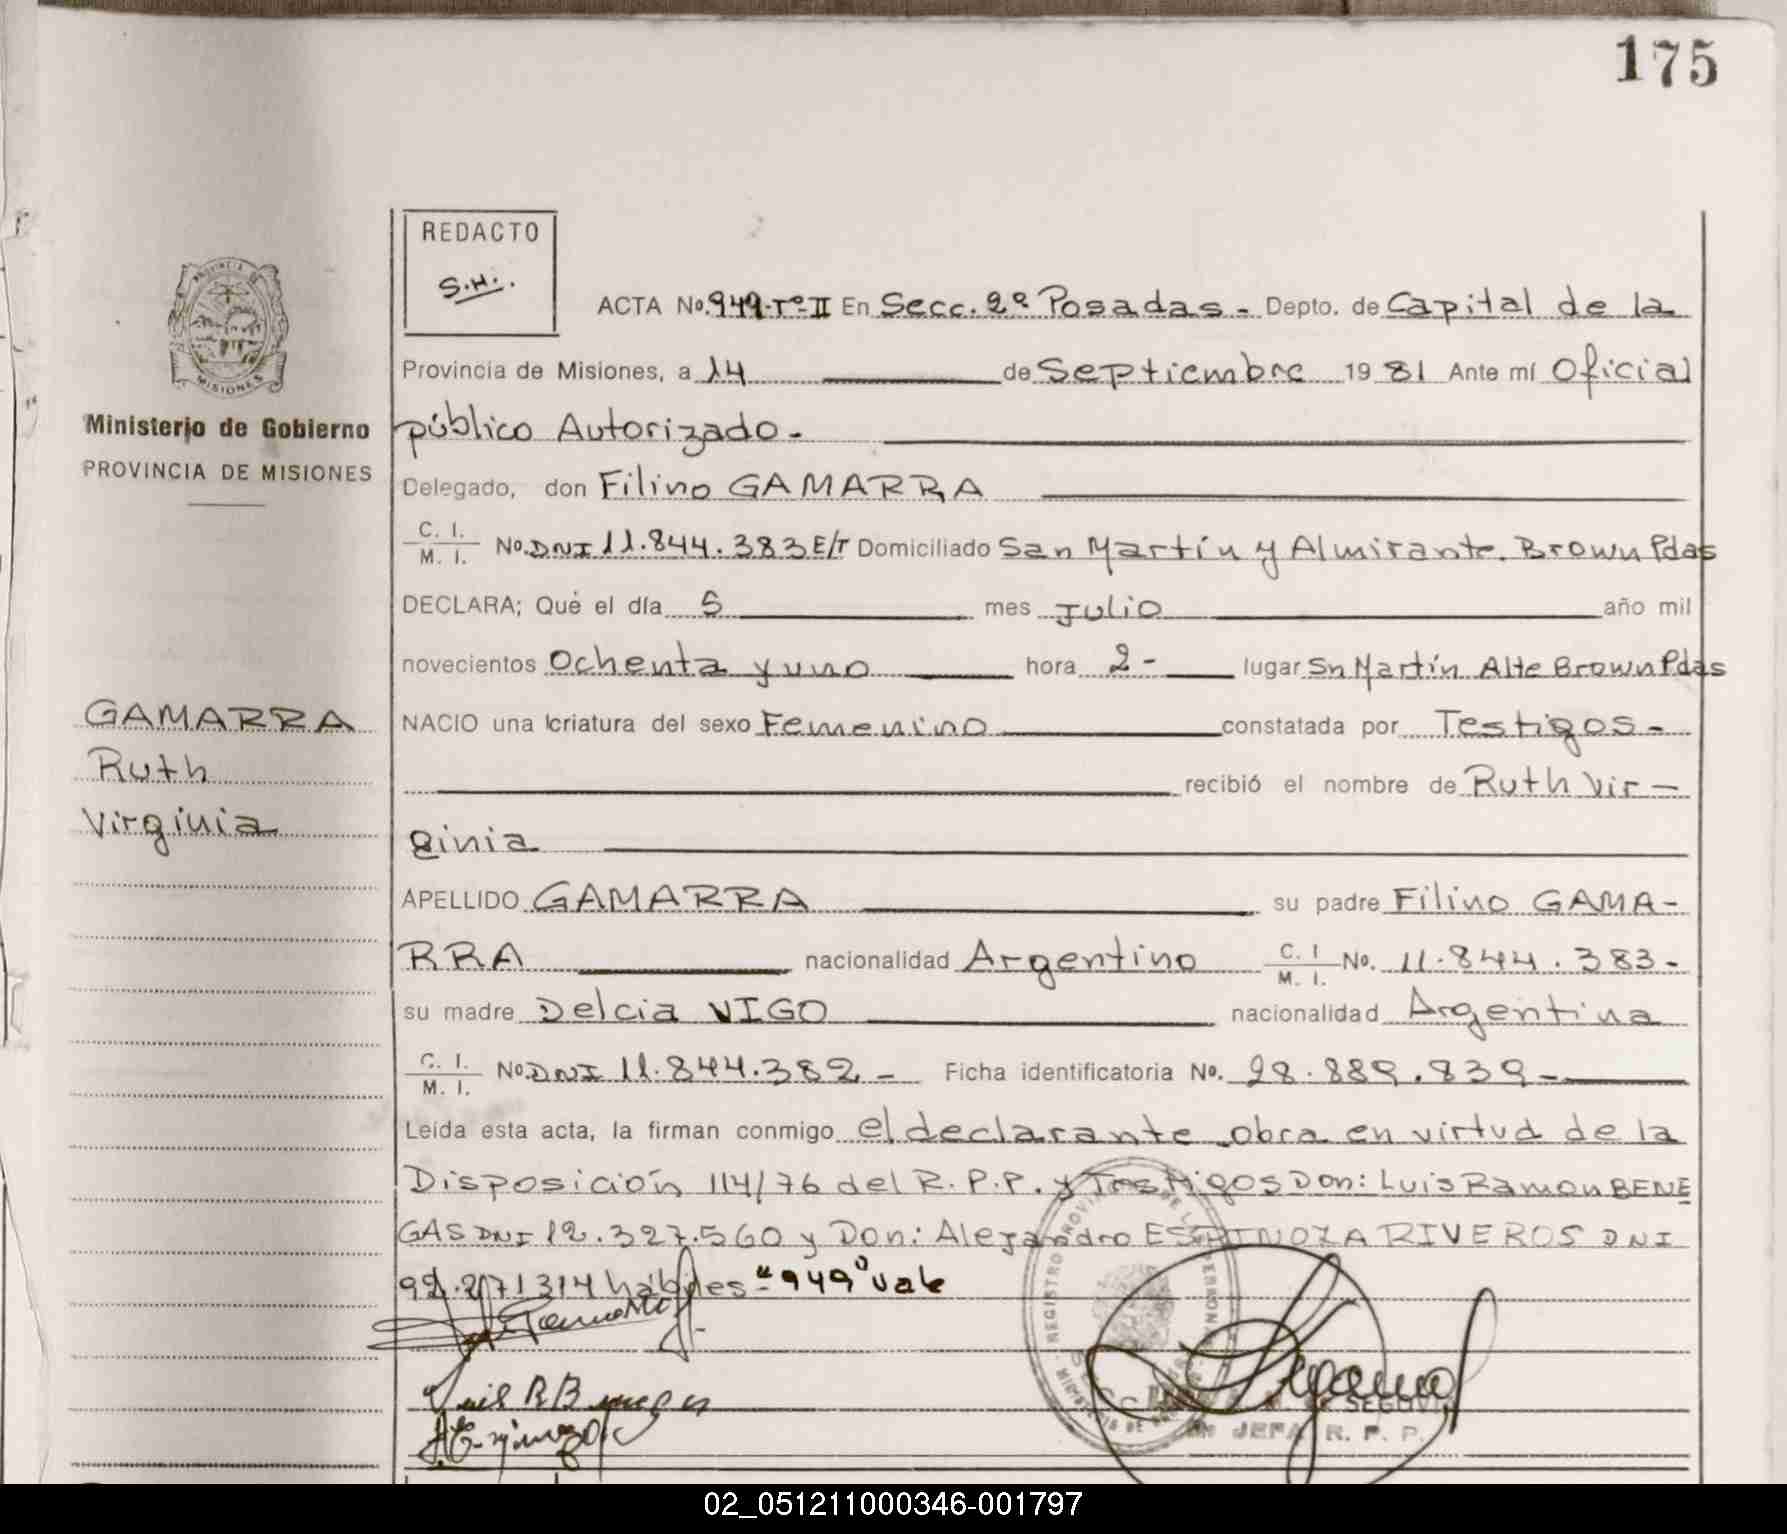 175
REDACTO
S.H.
ACTA No. 949-Tº-II En Secc. 2º Posadas - Depto. de Capital de la
Provincia de Misiones, a 14 de Septiembre 1981 Ante mí Oficial
público Autorizado-
Delegado, don Filino GAMARRA
C. I. / M. I. No. DNI 11.844.383 E/T Domiciliado San Martín y Almirante. Brown Pdas
DECLARA; Qué el día 5 mes Julio año mil
novecientos Ochenta y uno hora 2- lugar Sn Martín Alte Brown Pdas
NACIO una criatura del sexo Femenino constatada por Testigos-
recibió el nombre de Ruth Vir-
ginia
APELLIDO GAMARRA su padre Filino GAMA-
RRA nacionalidad Argentino C. I / M. I. No. 11.844.383-
su madre Delcia VIGO nacionalidad Argentina
C. I. / M. I. No. DNI 11.844.382- Ficha identificatoria No. 28.889.839-
Leída esta acta, la firman conmigo el declarante obra en virtud de la
Disposición 114/76 del R.P.P. y Testigos Don: Luis Ramon BENE
GAS DNI 12.327.560 y Don: Alejandro ESPINOZA RIVEROS DNI
92.271314 hábiles- "949" vale
JEFA R. P. P.
PROVINCIA DE
MISIONES
Ministerio de Gobierno
PROVINCIA DE MISIONES
GAMARRA
Ruth
Virginia
02_051211000346-001797